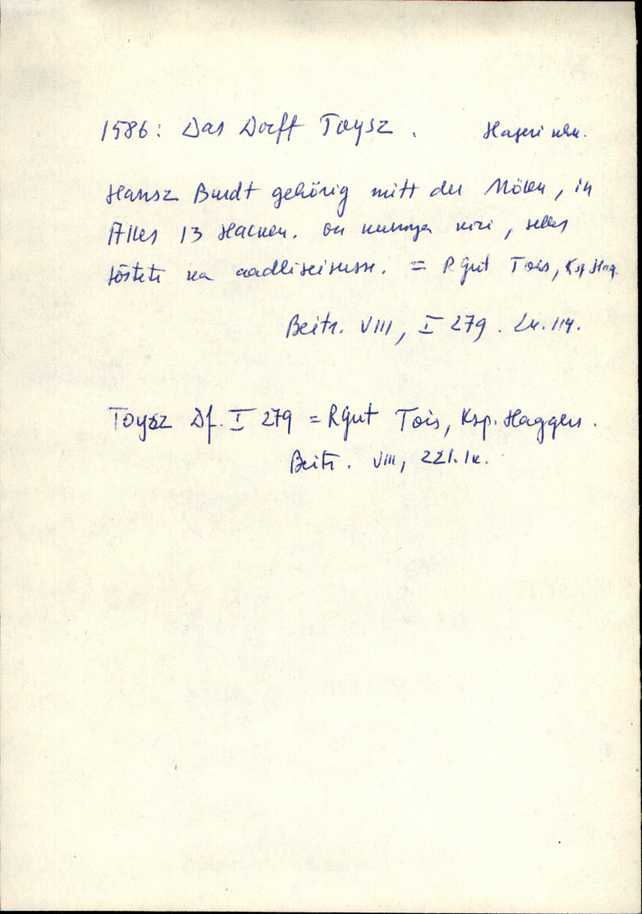 1586: Das Dorff Toysz. Hageri khk.
Hansz Burdt gehörig mitt der Mölen, in
Alles 13 Hacken. On
tõsteti ka aadliseisusse. = Rgut Tois, Ksp Hag.
Beitr. VIII, I 279. Lk. 114.
Toysz Df. I 279 = Rgut Tois, Ksp. Haggers.
Beitr. VIII, 221. lk.